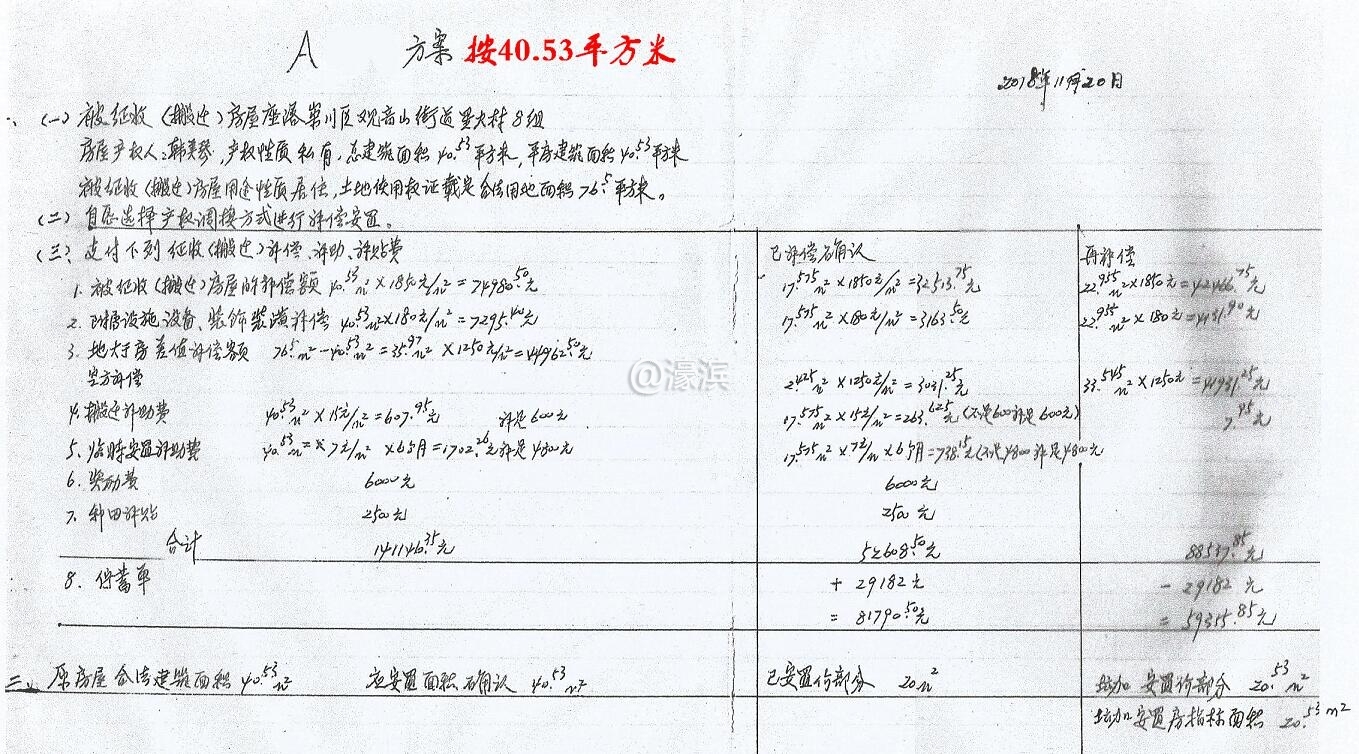 A 方案 按40.53平方米
2018年11月20日
(一) 被征收(搬迁)房屋座落崇川区观音山街道星火村8组
房屋产权人:韩美琴,产权性质私有,总建筑面积40.53平方米,平房建筑面积40.53平方米
被征收(搬迁)房屋用途性质居住,土地使用权证载定合法用地面积76.5平方米。
(二) 自愿选择产权调换方式进行补偿安置。
(三) 支付下列征收(搬迁)补偿、补助、补贴费 已补偿确认 再补偿
1. 被征收(搬迁)房屋的补偿额 40.53m²×1850元/m²=74980.50元 17.575m²×1850元/m²=32513.75元 22.955m²×1850元=42466.75元
2. 附属设施设备、装饰装潢补偿 40.53m²×180元/m²=7295.40元 17.575m²×180元/m²=3163.50元 22.955m²×180元=4131.90元
3. 地大于房差值补偿额 76.5m²-40.53m²=35.97m²×1250元/m²=44962.50元
空方补偿 2.425m²×1250元/m²=3031.25元 33.545m²×1250元=41931.25元
4. 搬迁补助费 40.53m²×15元/m²=607.95元 补足600元 17.575m²×15元/m²=263.625元(不足600补足600元) 7.95元
5. 临时安置补助费 40.53m²×7元/m²×6个月=1702.26元补足4800元 17.575m²×7元/m²×6个月=738.15元(不足4800补足4800元
6. 奖励费 6000元 6000元
7. 种田补贴 2500元 2500元
合计 141146.35元 52608.50元 88537.85元
8. 储蓄单 + 29182元 - 29182元
= 81790.50元 = 59355.85元
三、原房屋合法建筑面积40.53m² 应安置面积确认 40.53m² 已安置的部分 20m² 增加安置的部分 20.53m²
增加安置房指标面积 20.53m²
@濠滨